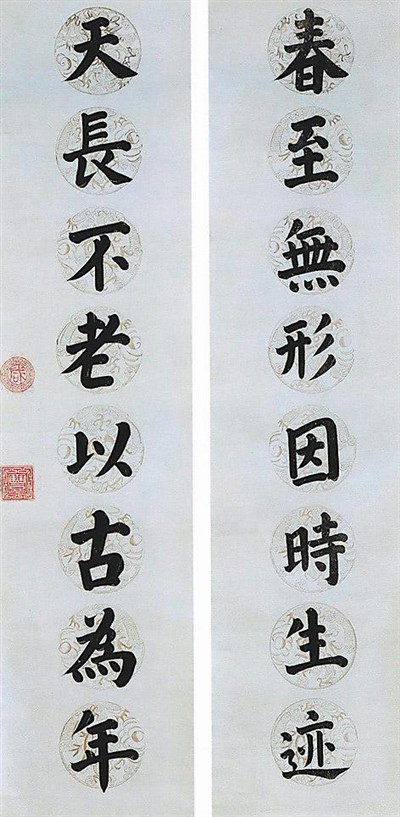 春至無形因時生迹
天長不老以古為年